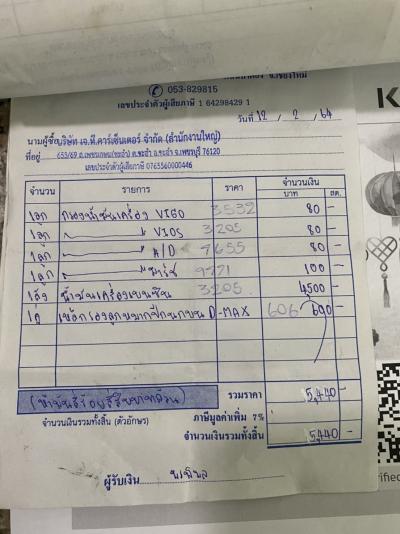 053-829815
เลขประจำตัวผู้เสียภาษี 1 64298429 1
วันที่ 12 / 2 / 64
นามผู้ซื้อ บริษัท เจ.ที.คาร์เซ็นเตอร์ จำกัด (สำนักงานใหญ่)
ที่อยู่ 653/69 ถ.เพชรเกษม(ชะอำ) ต.ชะอำ อ.ชะอำ จ.เพชรบุรี 76120
เลขประจำตัวผู้เสียภาษี 0765560000446
จำนวน รายการ ราคา จำนวนเงิน
บาท สต.
1ลูก กรองน้ำมันเครื่อง VIGO 3532 80 -
1ลูก VIOS 3205 80 -
1ลูก A/D 7655 80 -
1ลูก 9771 100 -
1ลัง น้ำมันเครื่องเบนซิน 3205 4500 -
1คู่ D-MAX 606 600 -
(ห้าพันสี่ร้อยสี่สิบบาทถ้วน) รวมราคา 5,440 -
จำนวนเงินรวมทั้งสิ้น (ตัวอักษร) ภาษีมูลค่าเพิ่ม 7%
จำนวนเงินรวมทั้งสิ้น 5,440 -
ผู้รับเงิน
K